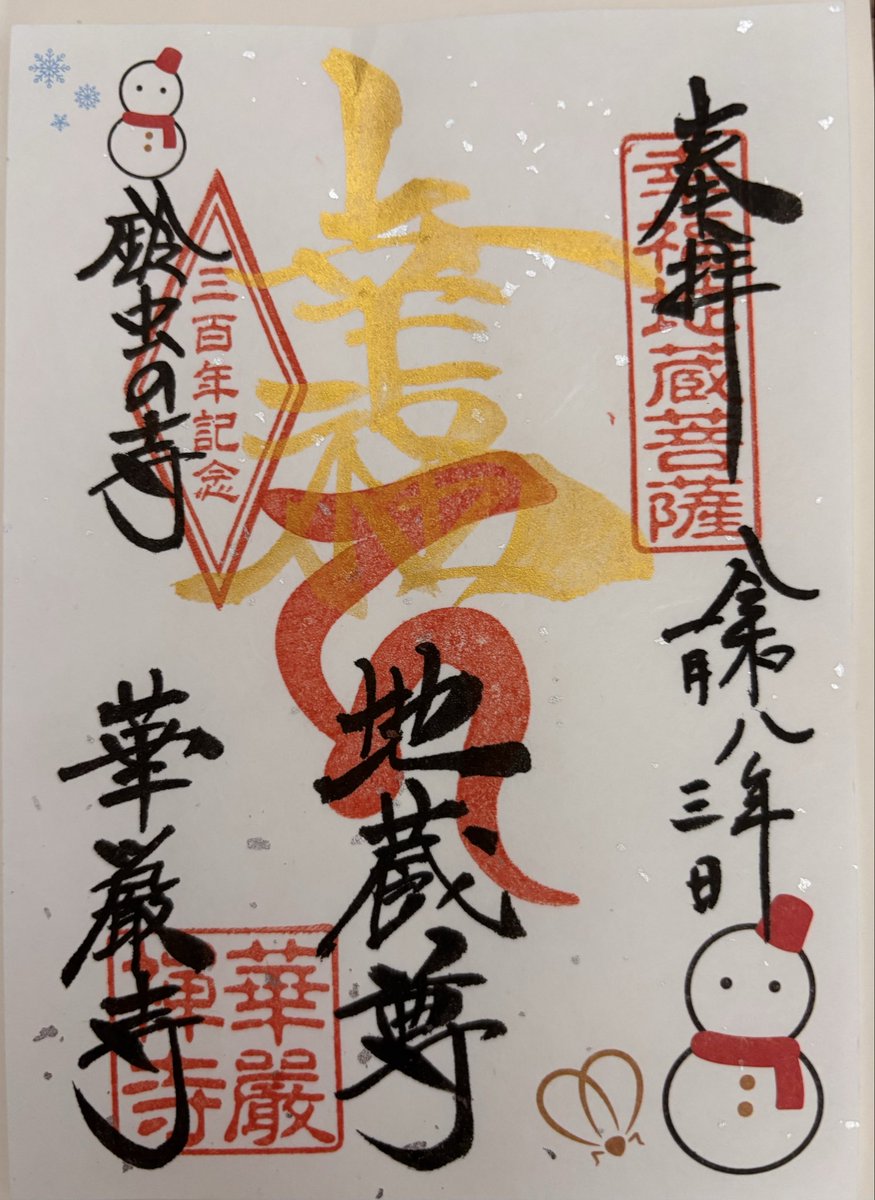 奉拝
幸福地蔵菩薩
令和八年
一月三日
幸福
地蔵尊
鈴虫の寺
三百年記念
華厳寺
華嚴
禪寺